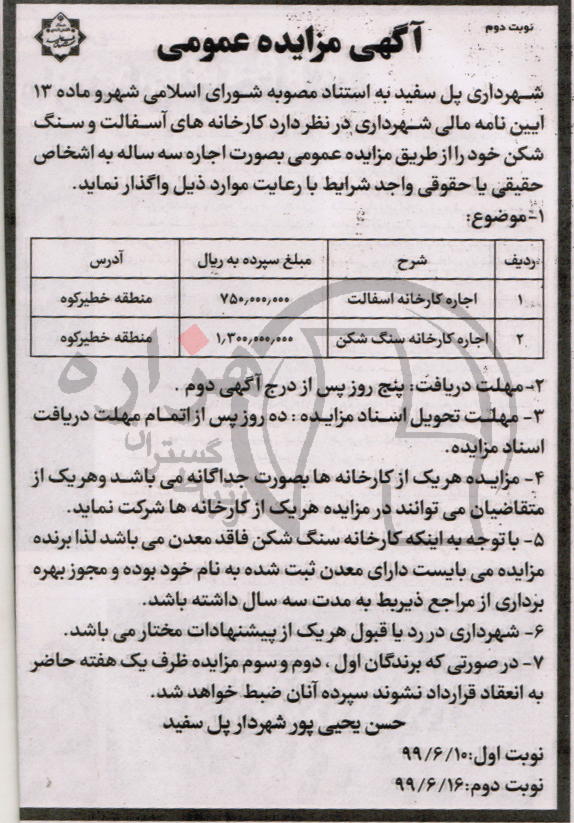 نوبت دوم
آگهی مزایده عمومی
شهرداری پل سفید به استناد مصوبه شورای اسلامی شهر و ماده ۱۳
ایین نامه مالی شهرداری در نظر دارد کارخانه های آسفالت و سنگ
شکن خود را از طریق مزایده عمومی بصورت اجاره سه ساله به اشخاص
حقیقی یا حقوقی واجد شرایط با رعایت موارد ذیل واگذار نماید.
۱-موضوع:
ردیف شرح مبلغ سپرده به ریال آدرس
۱ اجاره کارخانه اسفالت ۷۵۰٫۰۰۰٫۰۰۰ منطقه خطیرکوه
۲ اجاره کارخانه سنگ شکن ۱٫۳۰۰٫۰۰۰٫۰۰۰ منطقه خطیرکوه
۲-مهلت دریافت: پنج روز پس از درج آگهی دوم .
۳- مهلت تحویل اسناد مزایده : ده روز پس از اتمام مهلت دریافت
اسناد مزایده.
۴- مزایده هر یک از کارخانه ها بصورت جداگانه می باشد وهر یک از
متقاضیان می توانند در مزایده هر یک از کارخانه ها شرکت نماید.
۵- با توجه به اینکه کارخانه سنگ شکن فاقد معدن می باشد لذا برنده
مزایده می بایست دارای معدن ثبت شده به نام خود بوده و مجوز بهره
برداری از مراجع ذیربط به مدت سه سال داشته باشد.
۶- شهرداری در رد یا قبول هر یک از پیشنهادات مختار می باشد.
۷- در صورتی که برندگان اول ، دوم و سوم مزایده ظرف یک هفته حاضر
به انعقاد قرارداد نشوند سپرده آنان ضبط خواهد شد.
حسن یحیی پور شهردار پل سفید
نوبت اول:۹۹/۶/۱۰
نوبت دوم:۹۹/۶/۱۶
هزاره
گستران